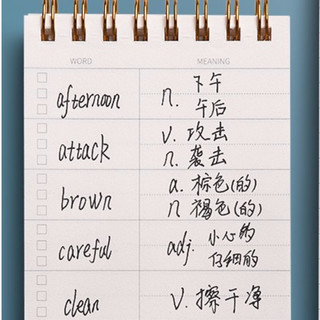 WORD MEANING
afternoon n. 下午
午后
attack v. 攻击
n. 袭击
brown a. 棕色(的)
n 褐色(的)
careful adj. 小心的
仔细的
clean v. 擦干净